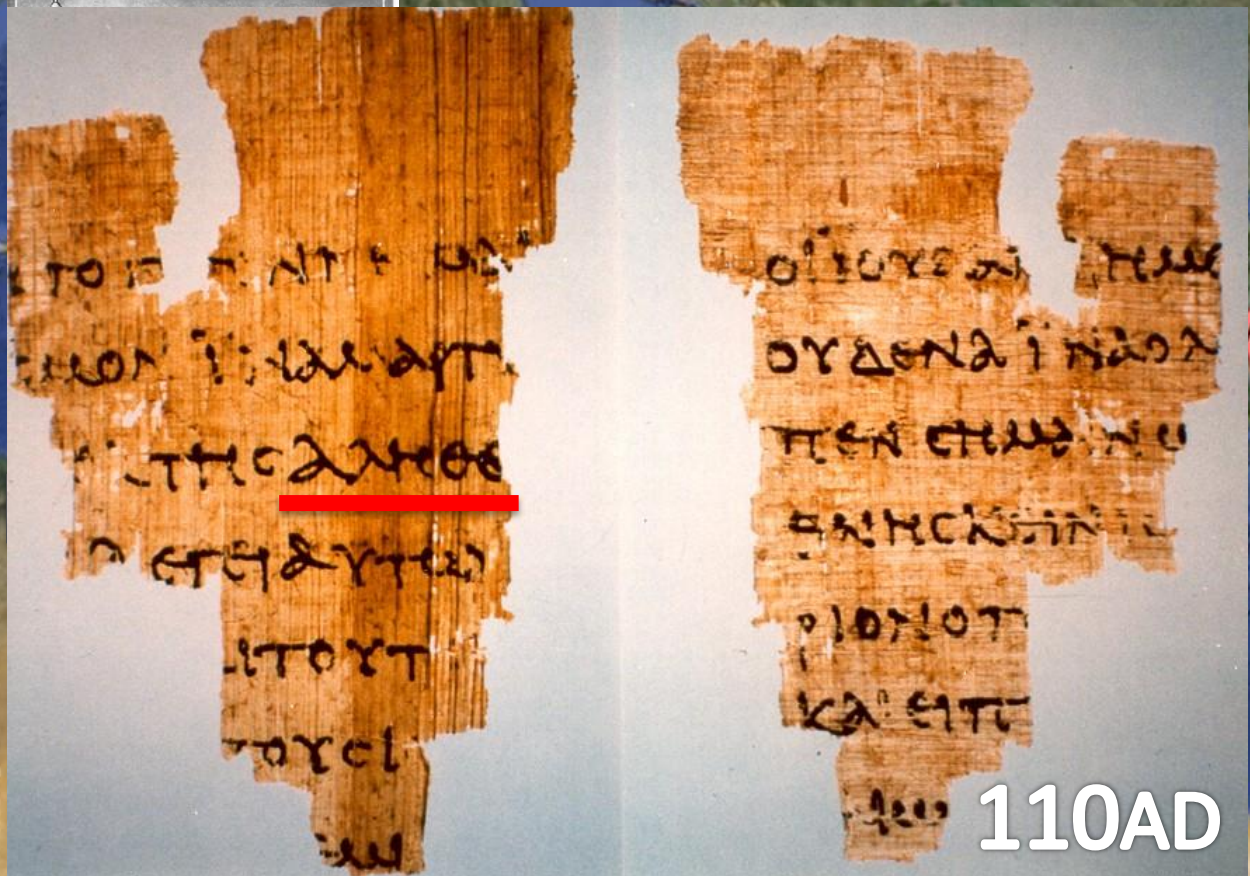 ΤΟ
ϹΜΟΝ ΪΝΑ ΜΑΡΤ
ΤΗϹ ΑΛΗΘΕ
ΛΕΓΕΙ ΑΥΤΩ
ΑΙ ΤΟΥΤ
ΤΟΥϹ Ι
ΟΙ ΪΟΥΔΑΙ ΗΜ
ΟΥΔΕΝΑ ΪΝΑ Ο Λ
ΠΕΝ ϹΗΜΑΙΝΩ
ΘΝΗϹΚΕΙΝ
ΡΙΟΝ Ο Π
ΚΑΙ ΕΙΠ
110AD